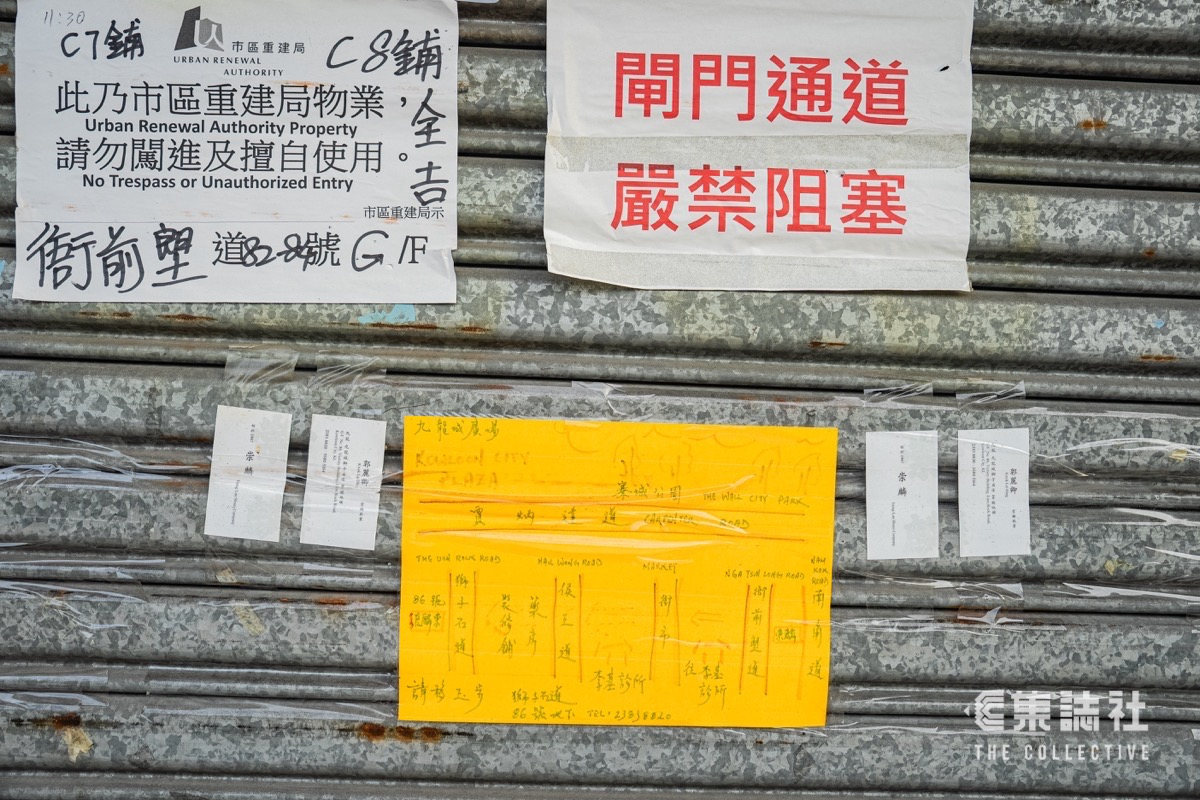 11:30
C7鋪
市區重建局
URBAN RENEWAL
AUTHORITY
C8鋪
全吉
此乃市區重建局物業，
Urban Renewal Authority Property
請勿闖進及擅自使用。
No Trespass or Unauthorized Entry
市區重建局示
衙前塱道82-84號 G/F
閘門通道
嚴禁阻塞
崇麟
郭麗卿
九龍城廣場
KOWLOON CITY
PLAZA
寨城公園 THE WALL CITY PARK
賈炳達道 CARPENTER ROAD
THE LION ROCK ROAD
HAU WONG ROAD
MARKET
NGA TSIN LONG ROAD
NAM KOK ROAD
86號
獅子石道
裝修鋪
藥房
侯王道
街市
衙前塱道
南角道
李基診所
往李基診所
請移玉步
獅子石道
86號地下 TEL: 23838820
崇麟
郭麗卿
集誌社
THE COLLECTIVE